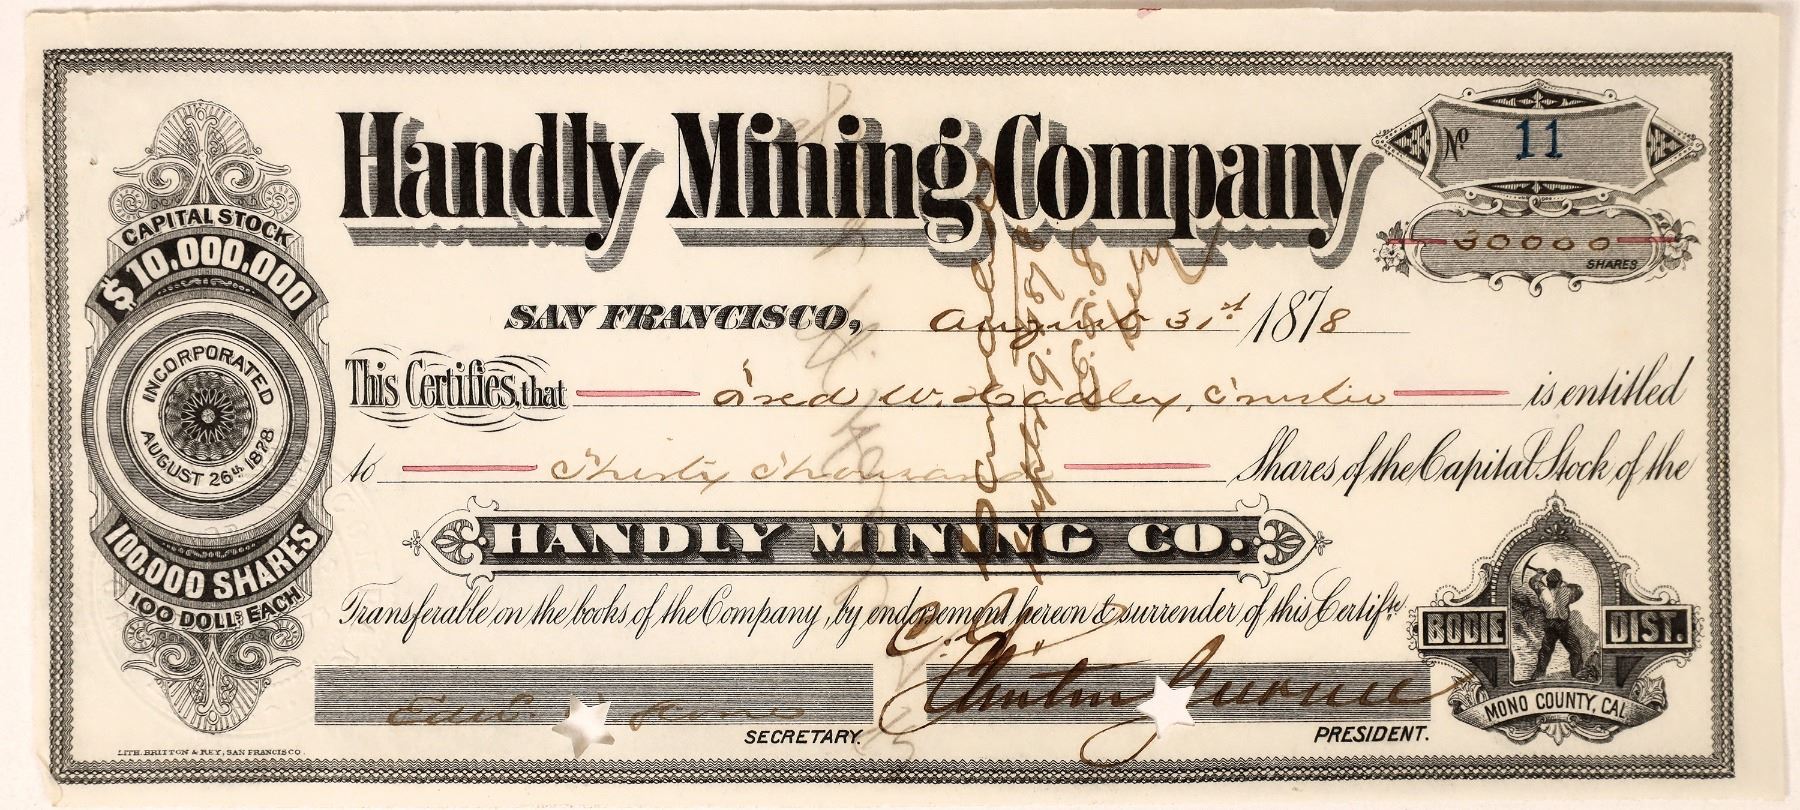 Handly Mining Company
No 11
30000
SHARES
CAPITAL STOCK
$10,000,000
INCORPORATED
AUGUST 26th 1878
100,000 SHARES
100 DOLLS EACH
SAN FRANCISCO, August 31st 1878
This Certifies, that Fred W. Hadley, Trustee is entitled
to Thirty Thousand Shares of the Capital Stock of the
HANDLY MINING CO.
Transferable on the books of the Company, by endorsement hereon & surrender of this Certifte
BODIE DIST.
MONO COUNTY, CAL
SECRETARY.
Clinton Gurnee
PRESIDENT.
LITH. BRITTON & REY, SAN FRANCISCO.